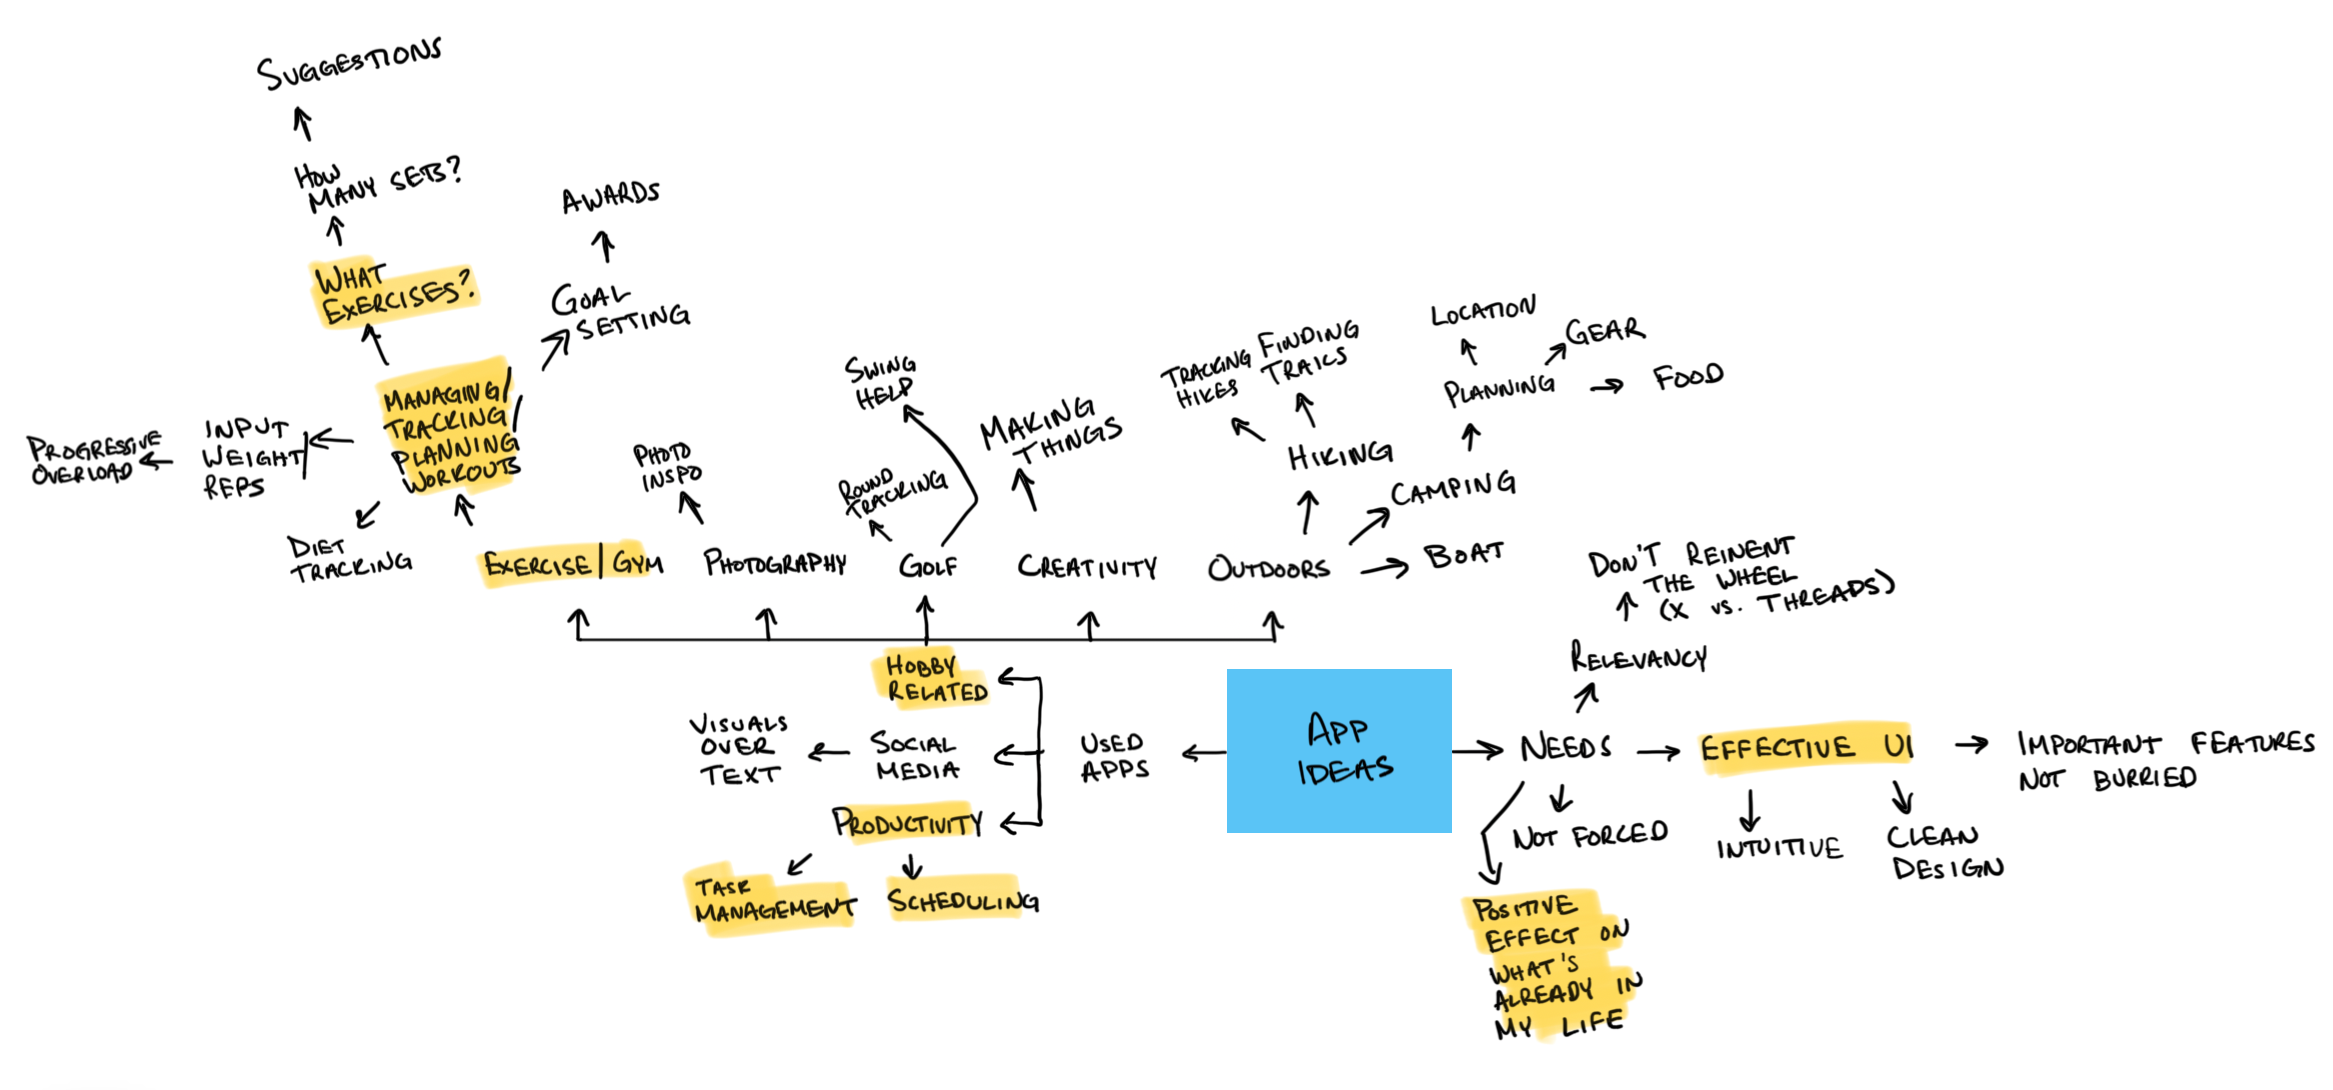 SUGGESTIONS
HOW
MANY SETS?
WHAT
EXERCISES?
AWARDS
GOAL
SETTING
MANAGING/
TRACKING/
PLANNING/
WORKOUTS
INPUT
WEIGHT/
REPS
PROGRESSIVE
OVERLOAD
DIET
TRACKING
EXERCISE | GYM
PHOTO
INSPO
PHOTOGRAPHY
SWING
HELP
ROUND
TRACKING
GOLF
MAKING
THINGS
CREATIVITY
TRACKING
HIKES
FINDING
TRAILS
HIKING
LOCATION
GEAR
PLANNING
FOOD
CAMPING
OUTDOORS
BOAT
HOBBY
RELATED
VISUALS
OVER
TEXT
SOCIAL
MEDIA
USED
APPS
PRODUCTIVITY
TASK
MANAGEMENT
SCHEDULING
APP
IDEAS
DON'T REINENT
THE WHEEL
(X VS. THREADS)
RELEVANCY
NEEDS
EFFECTIVE UI
IMPORTANT FEATURES
NOT BURRIED
NOT FORCED
INTUITIVE
CLEAN
DESIGN
POSITIVE
EFFECT ON
WHAT'S
ALREADY IN
MY LIFE